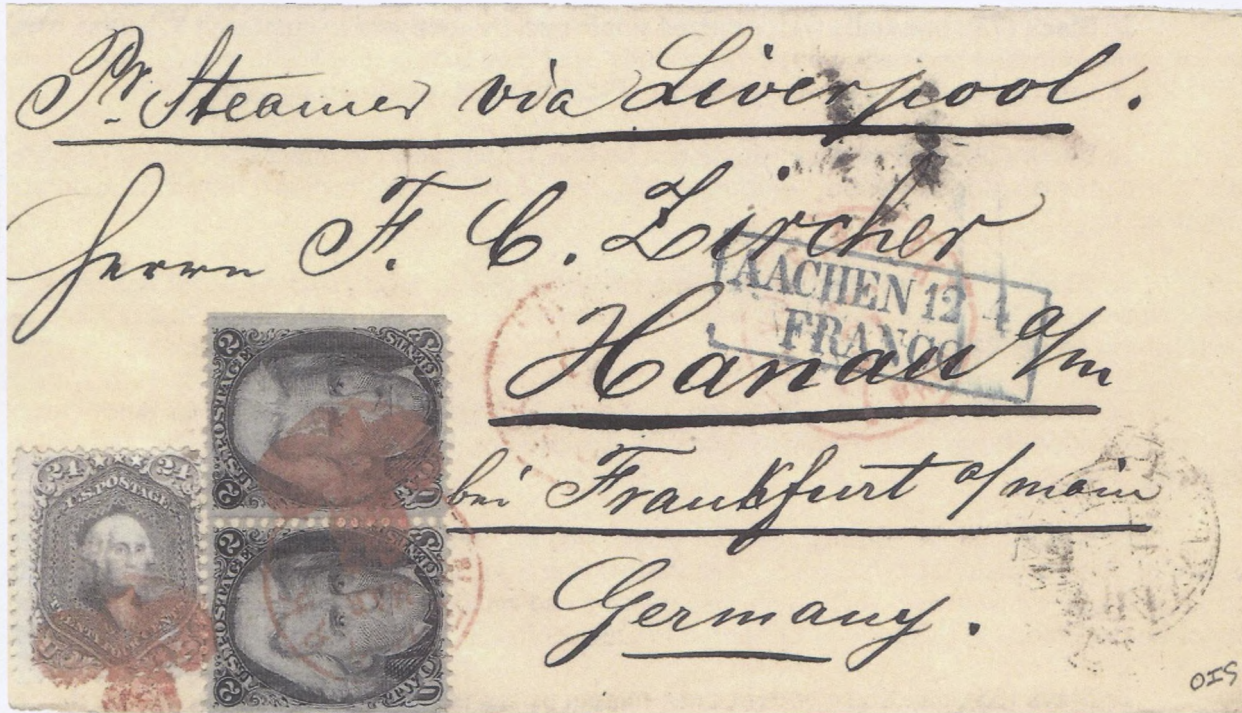 Pr. Steamer via Liverpool.
Herrn F. C. Zircher
AACHEN 12 4
FRANCO
Hanau a/m
bei Frankfurt a/main
Germany.
24 24
U.S. POSTAGE
2 2
U.S. POSTAGE
2 2
U.S. POSTAGE
OIS